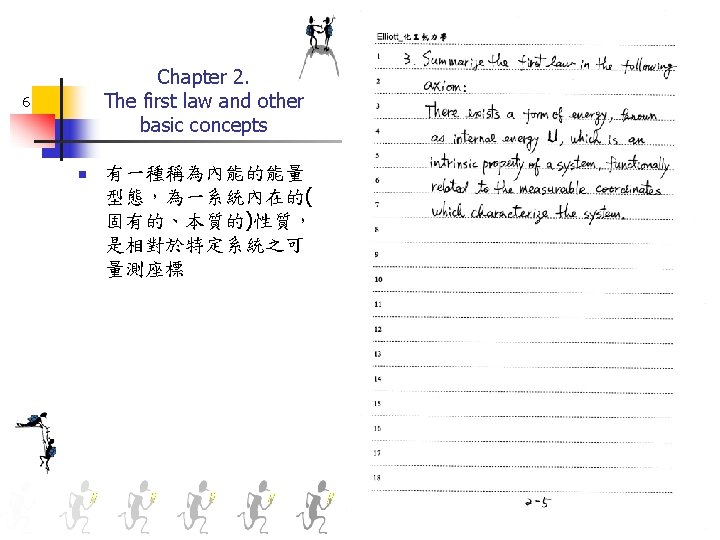 6
Chapter 2.
The first law and other
basic concepts
有一種稱為內能的能量
型態，為一系統內在的(
固有的、本質的)性質，
是相對於特定系統之可
量測座標
Elliott_化工熱力學
1 3. Summarize the first law in the following
2 axiom:
3 There exists a form of energy, known
4 as internal energy U, which is an
5 intrinsic property of a system, functionally
6 related to the measurable coordinates
7 which characterize the system.
8
9
10
11
12
13
14
15
16
17
18
2-5